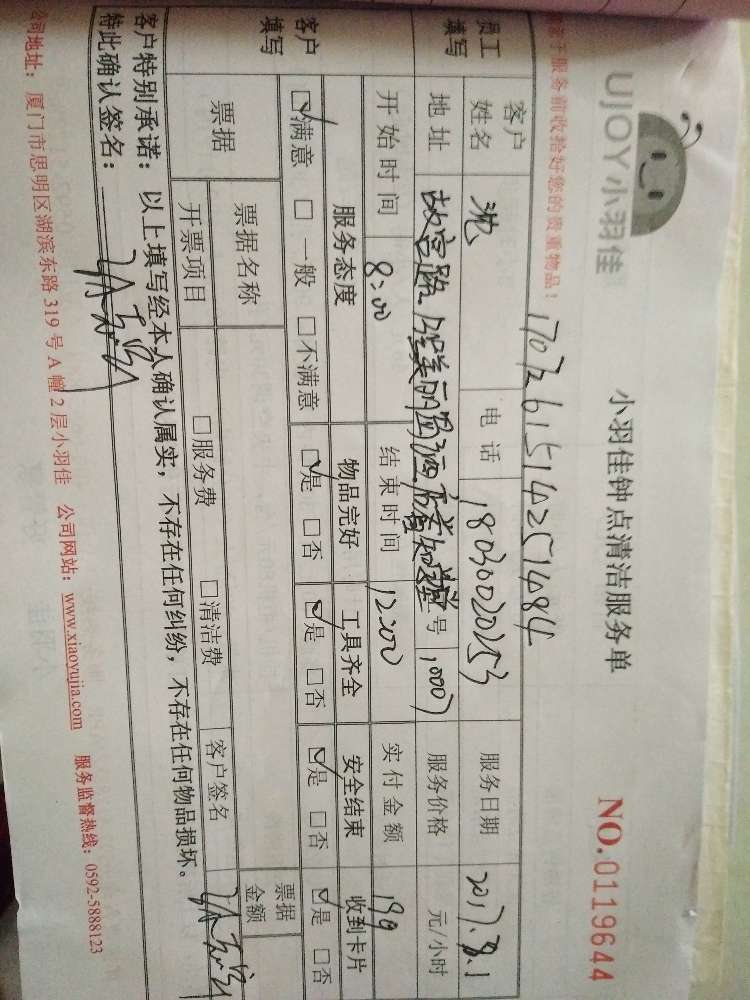 UJOY小羽佳
小羽佳钟点清洁服务单
NO.0119644
于服务前收拾好您的贵重物品！
17072615142251484
员工填写
客户姓名 沈 电话 18030020153 服务日期 2017.8.1
地址 故宫路 号 服务价格 元/小时
开始时间 8:00 结束时间 12:00 实付金额 199
客户填写
服务态度 物品完好 工具齐全 安全结束 收到卡片
☑满意 □一般 □不满意 ☑是 □否 ☑是 □否 ☑是 □否 ☑是 □否
票据 票据名称 票据金额
开票项目 □服务费 □清洁费 客户签名
客户特别承诺：以上填写经本人确认属实，不存在任何纠纷，不存在任何物品损坏。
特此确认签名：
公司地址：厦门市思明区湖滨东路319号A幢2层小羽佳 公司网站：www.xiaoyujia.com 服务监督热线：0592-5888123